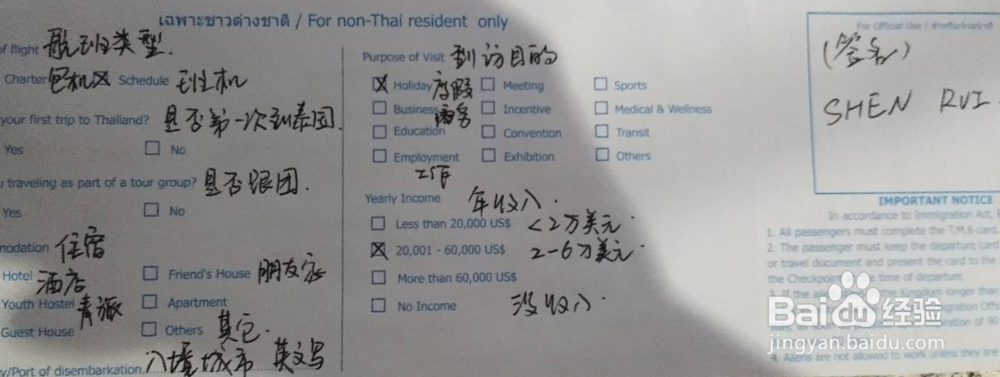 เฉพาะชาวต่างชาติ / For non-Thai resident only
of flight 航班类型.
Charter 包机 Schedule 班机
your first trip to Thailand? 是否第一次到泰国.
Yes No
traveling as part of a tour group? 是否跟团.
Yes No
modation 住宿
Hotel 酒店 Friend's House 朋友家
Youth Hostel 青旅 Apartment
Guest House Others 其它.
y/Port of disembarkation 入境城市 英文写
Purpose of Visit 到访目的
Holiday 度假 Meeting Sports
Business 商务 Incentive Medical & Wellness
Education Convention Transit
Employment Exhibition Others
工作
Yearly Income 年收入.
Less than 20,000 US$ <2万美元.
20,001 - 60,000 US$ 2-6万美元.
More than 60,000 US$
No Income 没收入.
For Official Use /
(签名)
SHEN RUI
IMPORTANT NOTICE
In accordance to Immigration Act,
1. All passengers must complete the T.M.6 card.
2. The passenger must keep the departure card
or travel document and present the card to the
the Checkpoint time of departure.
3. If the Kingdom longer than
of 90
4. Aliens are not allowed to work unless they are
Baidu 经验
jingyan.baidu.com